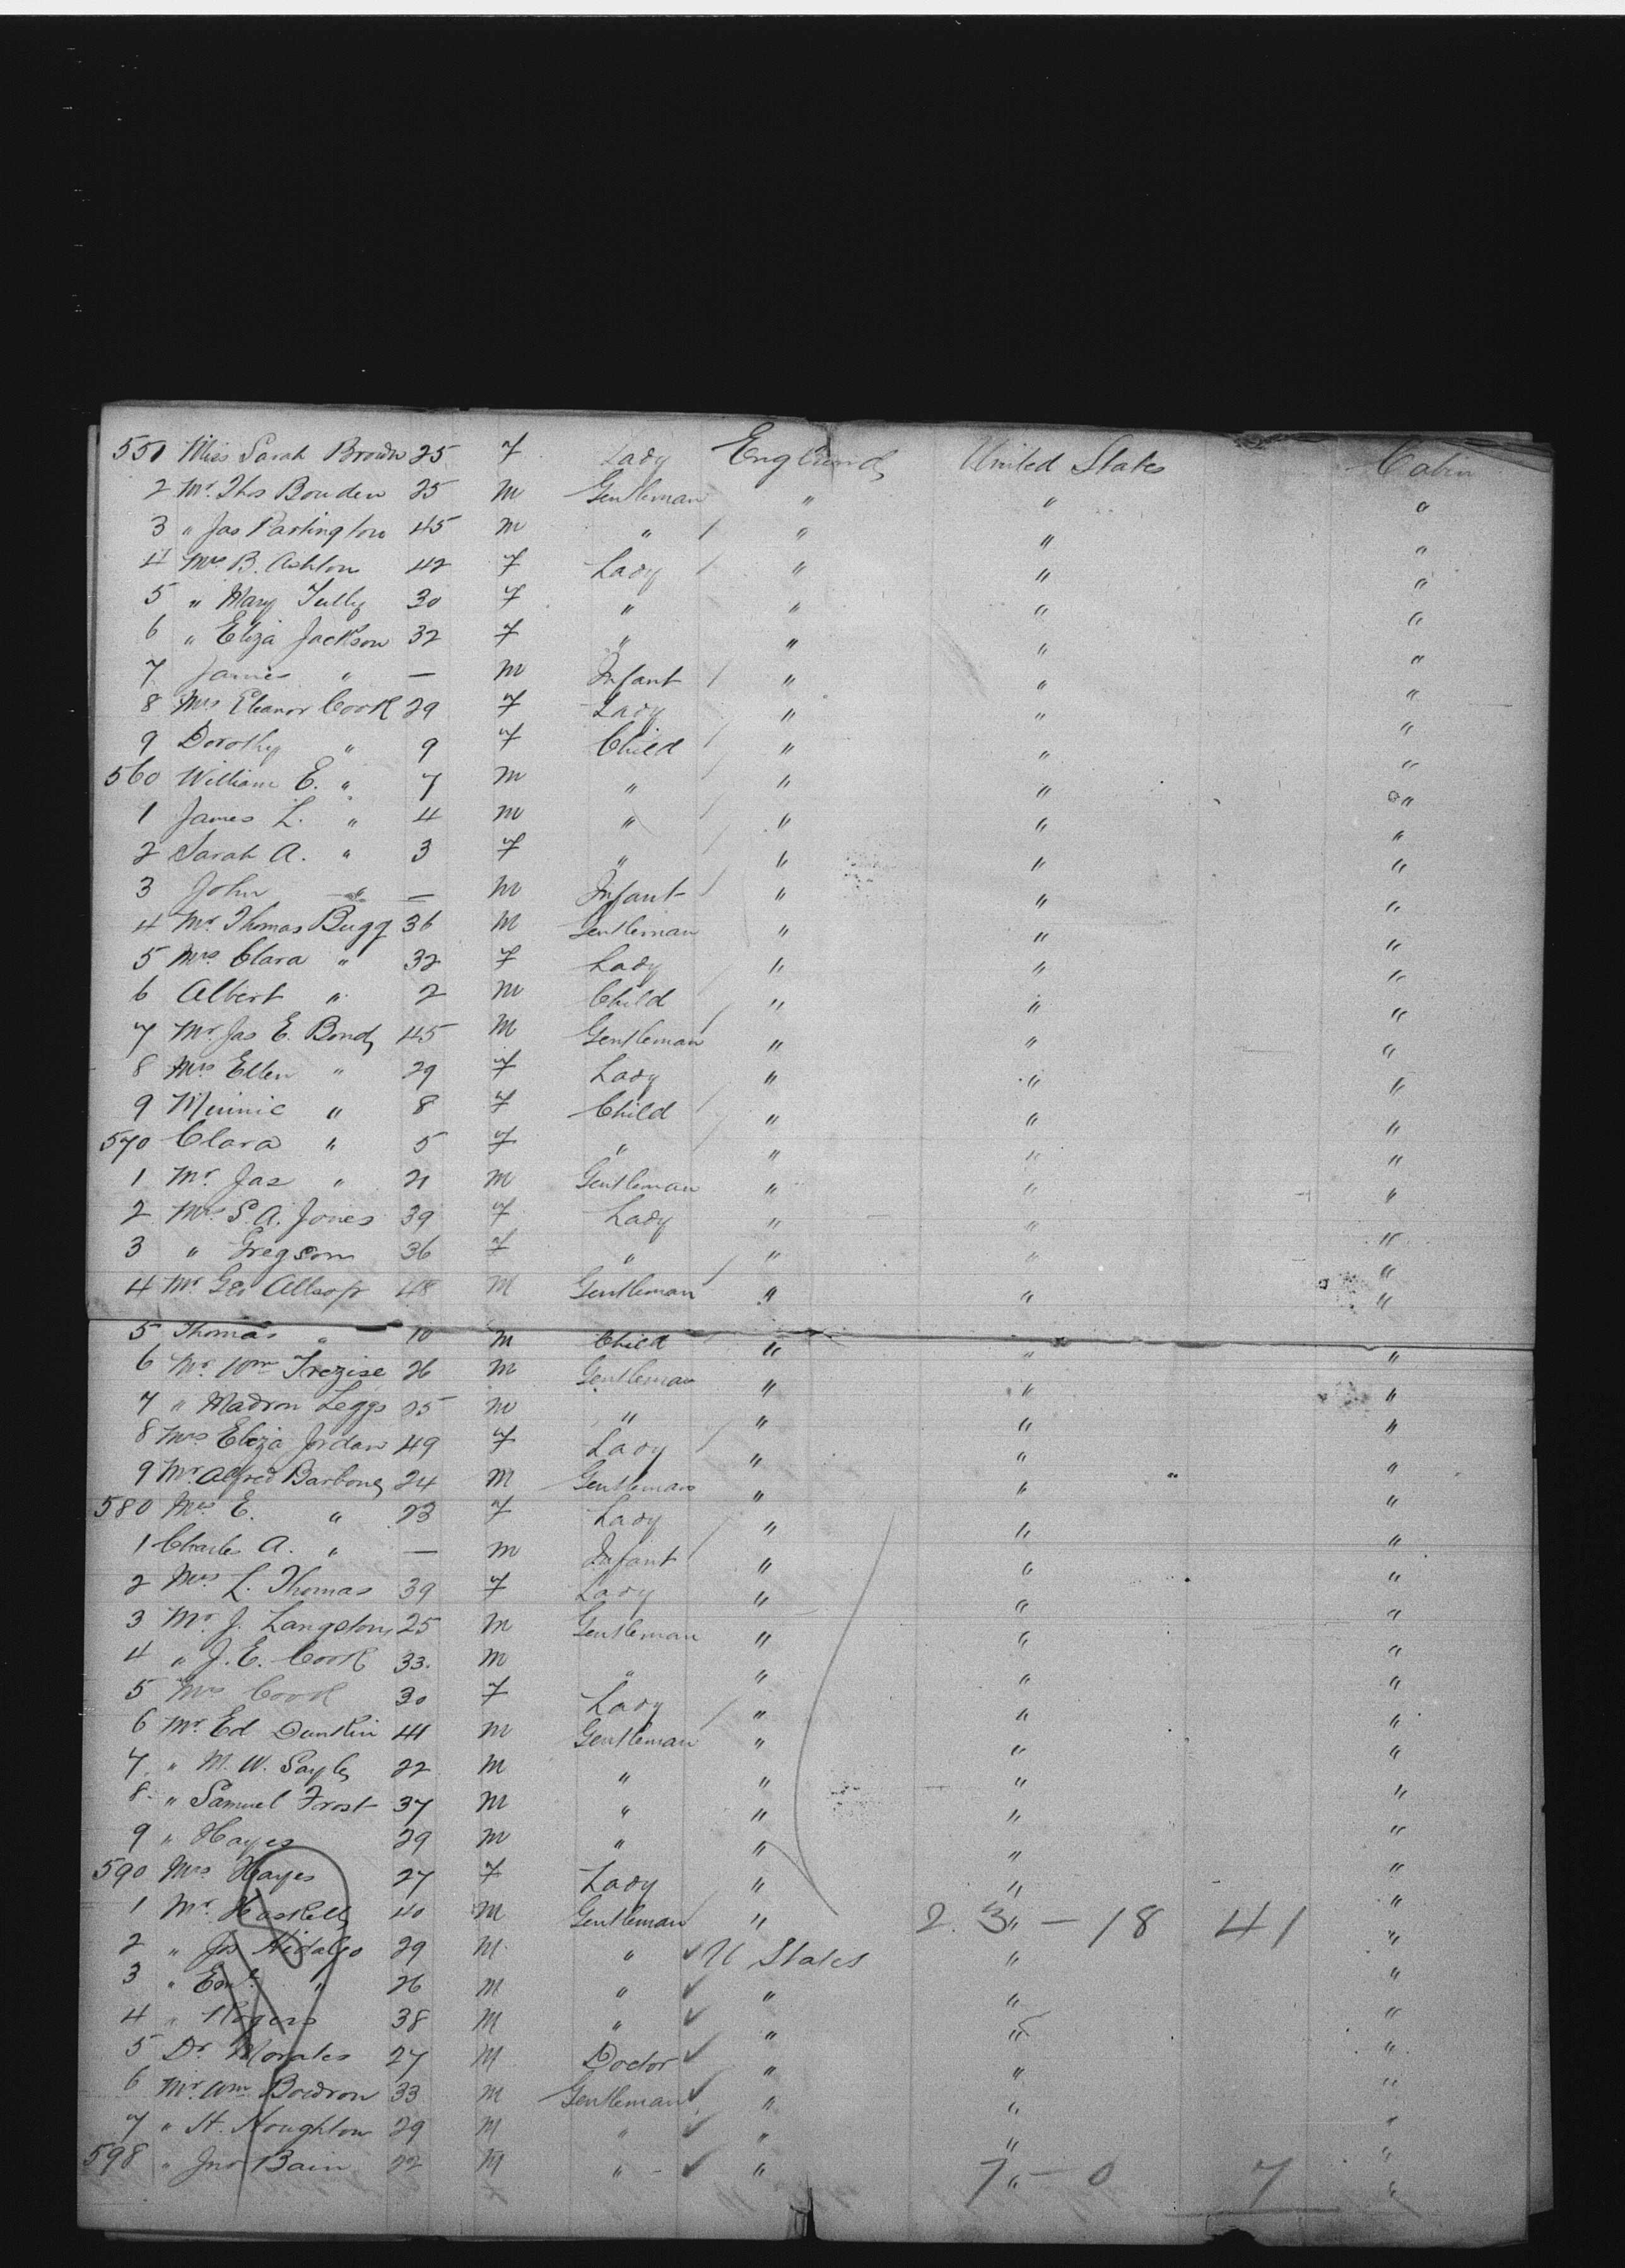 551 Miss Sarah Brown 25 f Lady England United States Cabin
2 Mr. Thos Bowden 25 m Gentleman " " "
3 " Jas Partington 45 m " " " "
4 Mrs B. Ashton 42 f Lady " " "
5 " Mary Tully 30 f " " " "
6 " Eliza Jackson 32 f " " " "
7 James " — m Infant " " "
8 Mrs Eleanor Cook 29 f Lady " " "
9 Dorothy " 9 f Child " " "
560 William E. " 7 m " " " "
1 James L. " 4 m " " " "
2 Sarah A. " 3 f " " " "
3 John " — m Infant " " "
4 Mr. Thomas Bugg 36 m Gentleman " " "
5 Mrs. Clara " 32 f Lady " " "
6 Albert " 2 m Child " " "
7 Mr. Jas E. Bond 45 m Gentleman " " "
8 Mrs Ellen " 29 f Lady " " "
9 Minnie " 8 f Child " " "
570 Clara " 5 f " " " "
1 Mr. Jas " 21 m Gentleman " " "
2 Mrs S. A. Jones 39 f Lady " " "
3 " Gregson 36 f " " " "
4 Mr. Geo Allsop 48 m Gentleman " " "
5 Thomas " 10 m Child " " "
6 Mr. Wm Trezise 26 m Gentleman " " "
7 " Madron Leggs 25 m " " " "
8 Mrs Eliza Jordan 49 f Lady " " "
9 Mr. Alfred Barbone 24 m Gentleman " " "
580 Mrs E. " 23 f Lady " " "
1 Charles A. " — m Infant " " "
2 Mrs L. Thomas 39 f Lady " " "
3 Mr. J. Langston 25 m Gentleman " " "
4 " J. E. Cook 33. m " " " "
5 Mrs Cook 30 f Lady " " "
6 Mr. Ed Dunkin 41 m Gentleman " " "
7 " M. W. Sayle 22 m " " " "
8 " Samuel Frost 37 m " " " "
9 " Hayes 29 m " " " "
590 Mrs Hayes 27 f Lady " " "
1 Mr. Haskell 40 m Gentleman " " 23 — 18 41 "
2 " Jos Hidalgo 29 m " U States " "
3 " " 26 m " " " "
4 " Rogers 38 m " " " "
5 Dr. Morales 27 m Doctor " " "
6 Mr. Wm Bowdron 33 m Gentleman " " "
7 " H. Houghton 29 m " " " "
598 " Jno Bain 22 m " " " 7 — 0 7 "